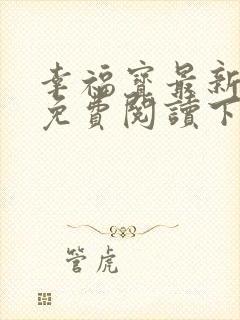 幸福寶最新
免費閱讀下
管虎